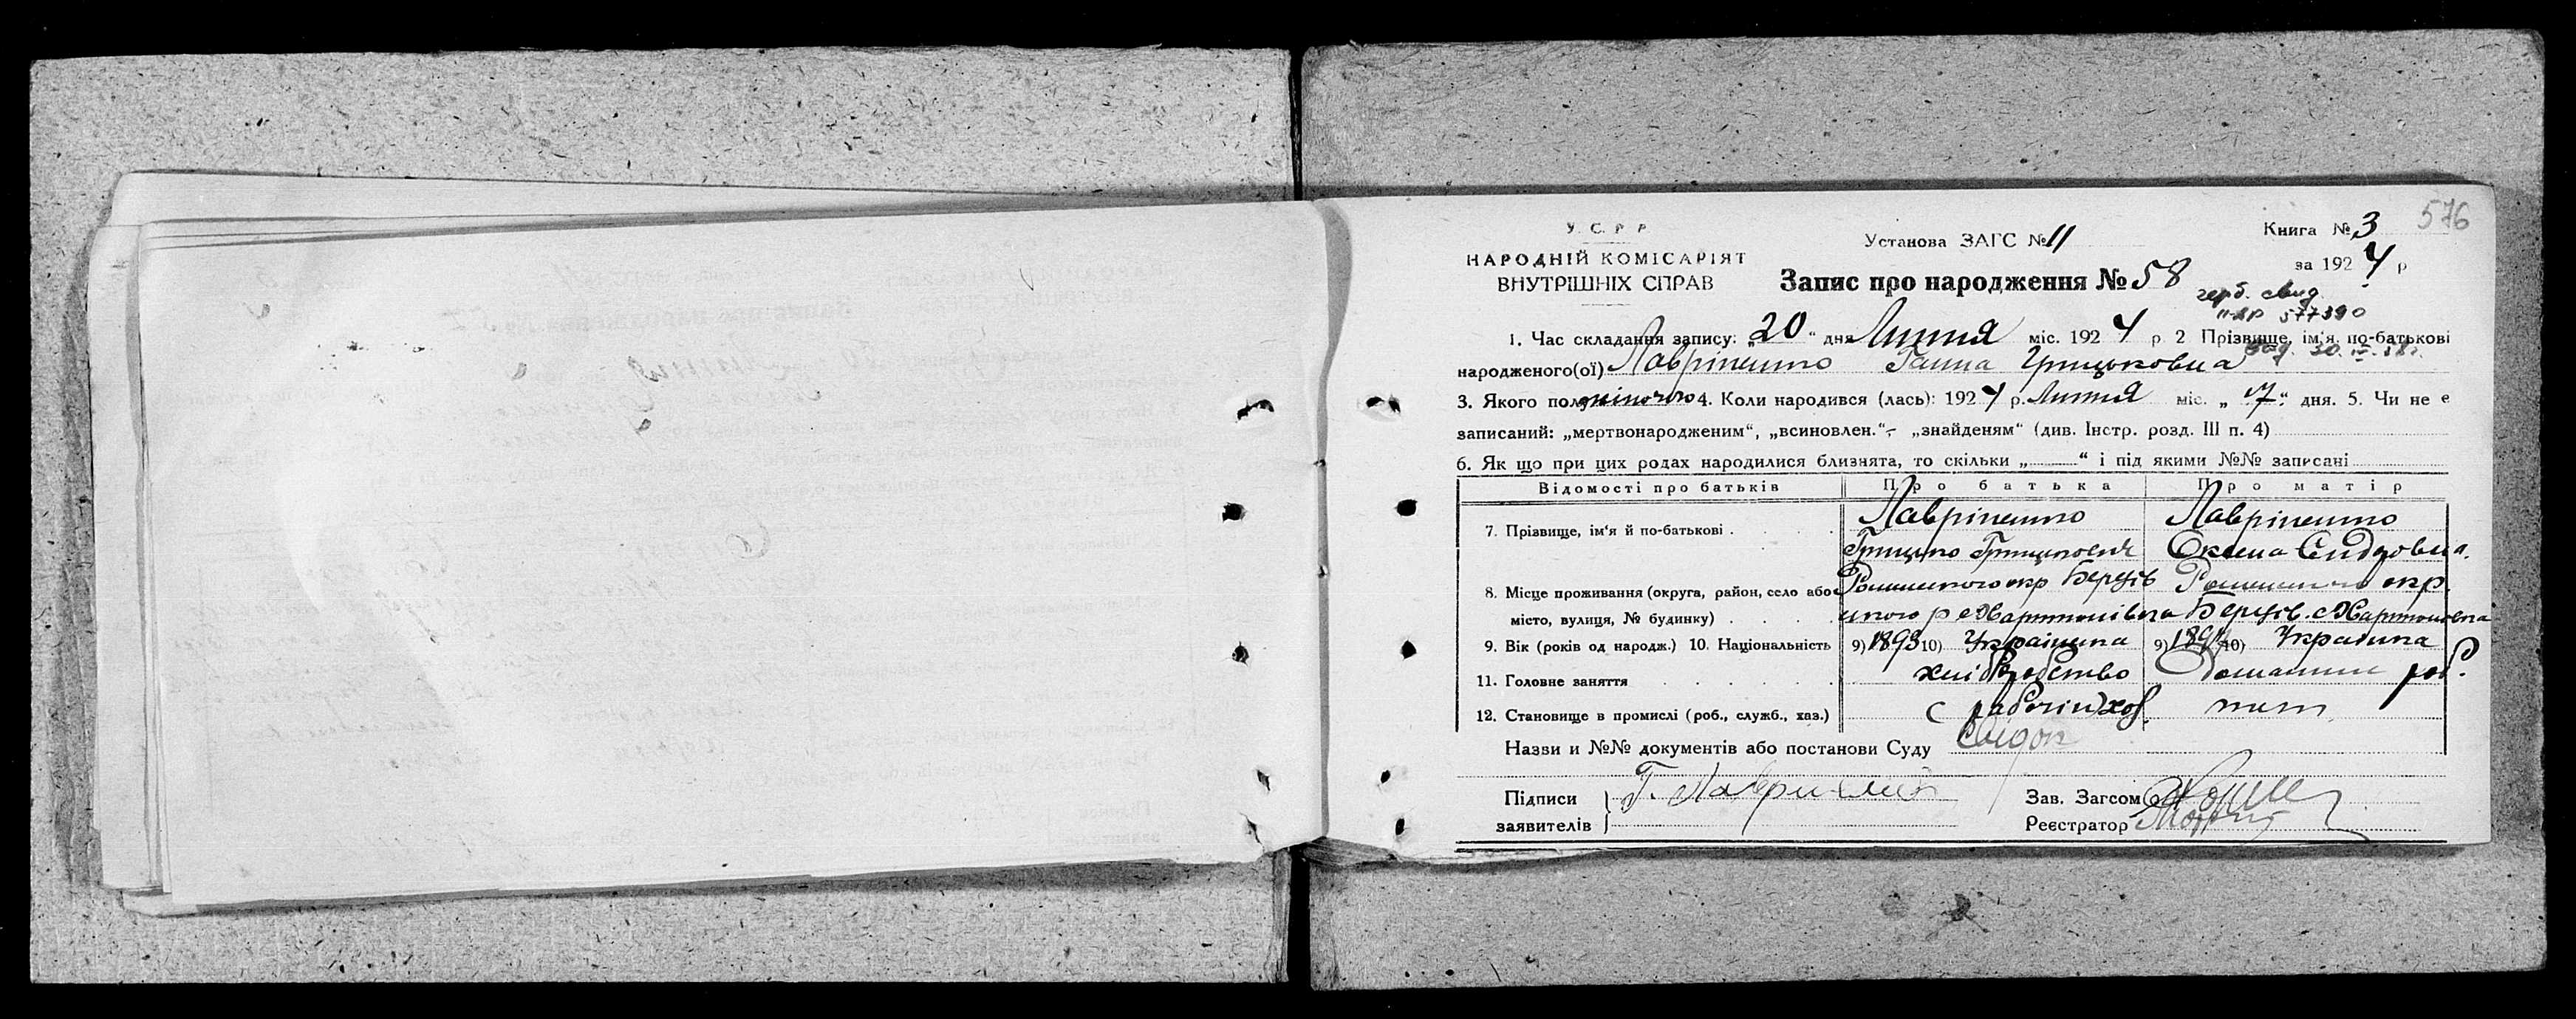 576
У. С. Р. Р.
НАРОДНІЙ КОМІСАРІЯТ
ВНУТРІШНІХ СПРАВ
Установа ЗАГС № 11
Книга № 3
за 1924 р
Запис про народження № 58
герб. свид
577390
1. Час складання запису: „20“ дня Липня міс. 1924 р 2 Прізвище, ім'я, по-батькові
народженого(ої) Лавріненко Ганна Грицьковна
3. Якого полу жіночого 4. Коли народився (лась): 1924 р. Липня міс. „17“ дня. 5. Чи не є
записаний: „мертвонародженим“, „всиновлен.“- „знайденям“ (див. Інстр. розд. III п. 4)
6. Як що при цих родах народилися близнята, то скільки „ “ і під якими №№ записані
Відомості про батьків Про батька Про матір
7. Прізвище, ім'я й по-батькові . Лавріненко Лавріненко
Грицько Грицькович Оксана Сидровна.
8. Місце проживання (округа, район, село або Роменського окр Березів Роменського окр.
місто, вулиця, № будинку) ського р с Хартоновка Березів. с Хартоновка
9. Вік (років од народж.) 10. Національність 9) 1893 10) Українка 9) 10) Українка
11. Головне заняття хліборобство Домашни роб.
12. Становище в промислі (роб., служб., хаз.) нет
Назви и №№ документів або постанови Суду
Підписи
заявителів
Г. Лавриненко
Зав. Загсом
Реєстратор